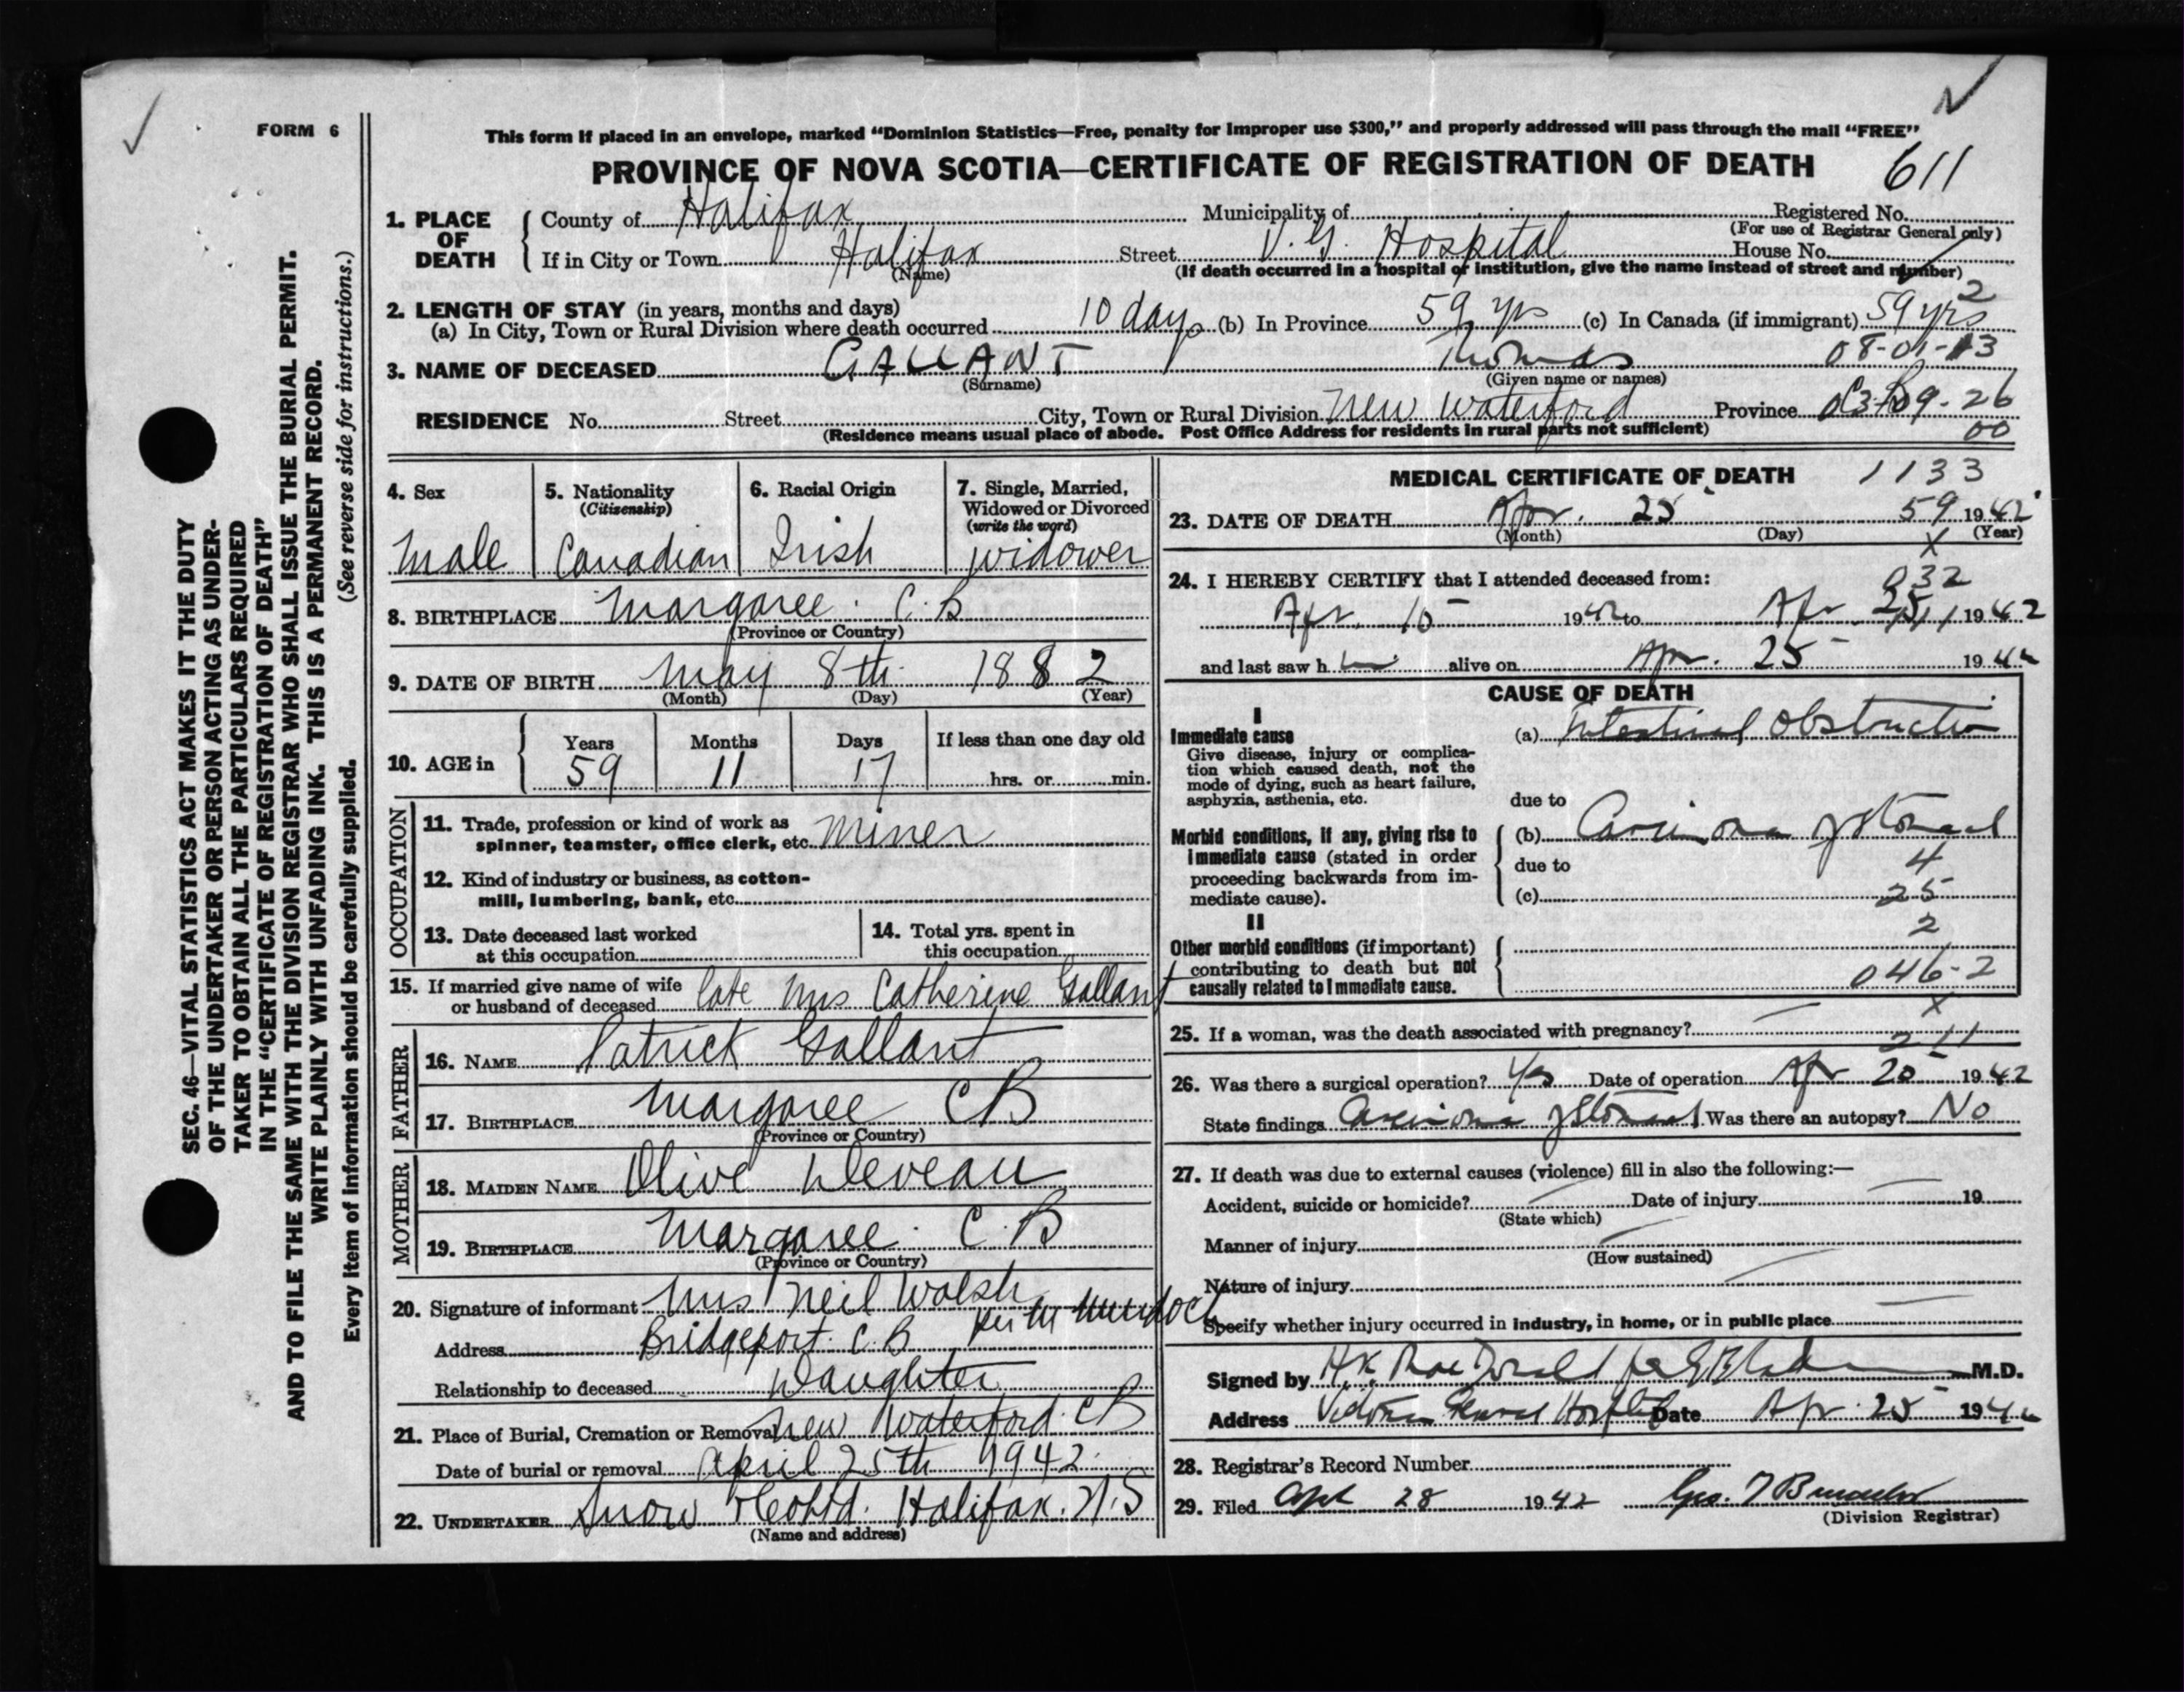 FORM 6
This form if placed in an envelope, marked “Dominion Statistics—Free, penalty for improper use $300,” and properly addressed will pass through the mail “FREE”
PROVINCE OF NOVA SCOTIA—CERTIFICATE OF REGISTRATION OF DEATH
611
1. PLACE OF DEATH
County of Halifax Municipality of Registered No.
(For use of Registrar General only)
If in City or Town Halifax Street V. G. Hospital House No.
(Name) (If death occurred in a hospital or institution, give the name instead of street and number)
2. LENGTH OF STAY (in years, months and days) 2
(a) In City, Town or Rural Division where death occurred 10 days (b) In Province 59 yrs (c) In Canada (if immigrant) 59 yrs
3. NAME OF DECEASED GALLANT Thomas 08-01-13
(Surname) (Given name or names)
RESIDENCE No. Street City, Town or Rural Division New Waterford Province
(Residence means usual place of abode. Post Office Address for residents in rural parts not sufficient) 00
4. Sex
Male
5. Nationality
(Citizenship)
Canadian
6. Racial Origin
Irish
7. Single, Married, Widowed or Divorced
(write the word)
widower
8. BIRTHPLACE Margaree. C.B
(Province or Country)
9. DATE OF BIRTH May 8th 1882
(Month) (Day) (Year)
10. AGE in
Years Months Days If less than one day old
59 11 17 hrs. or min.
OCCUPATION
11. Trade, profession or kind of work as
spinner, teamster, office clerk, etc. Miner
12. Kind of industry or business, as cotton-
mill, lumbering, bank, etc.
13. Date deceased last worked
at this occupation
14. Total yrs. spent in
this occupation
15. If married give name of wife
or husband of deceased late Mrs Catherine Gallant
FATHER
16. NAME Patrick Gallant
17. BIRTHPLACE Margaree CB
(Province or Country)
MOTHER
18. MAIDEN NAME Olive Deveau
19. BIRTHPLACE Margaree. C.B
(Province or Country)
20. Signature of informant Mrs Neil Walsh
per M Murdoch
Address Bridgeport. C.B
Relationship to deceased Daughter
21. Place of Burial, Cremation or Removal New Waterford. CB
Date of burial or removal April 25th 1942.
22. UNDERTAKER Snow & Co Ltd. Halifax. N.S
(Name and address)
MEDICAL CERTIFICATE OF DEATH 1133
23. DATE OF DEATH Apr. 25 59 1942
(Month) (Day) (Year)
X
24. I HEREBY CERTIFY that I attended deceased from:
032
Apr. 15 1942 to Apr 25 1942
and last saw him alive on Apr. 25 1942
CAUSE OF DEATH
I
Immediate cause
Give disease, injury or complica-
tion which caused death, not the
mode of dying, such as heart failure,
asphyxia, asthenia, etc.
(a) Intestinal Obstruction
due to
Morbid conditions, if any, giving rise to
immediate cause (stated in order
proceeding backwards from im-
mediate cause).
(b) Carcinoma of Stomach
due to 4
(c) 25
II 2
Other morbid conditions (if important)
contributing to death but not
causally related to immediate cause.
046-2
X
25. If a woman, was the death associated with pregnancy?
211
26. Was there a surgical operation? Yes Date of operation Apr 20 1942
State findings Carcinoma of Stomach Was there an autopsy? No
27. If death was due to external causes (violence) fill in also the following:—
Accident, suicide or homicide? Date of injury 19
(State which)
Manner of injury
(How sustained)
Nature of injury
Specify whether injury occurred in industry, in home, or in public place
Signed by H.K. MacDonald for M.D.
Address Victoria General Hospital Date Apr. 25 1942
28. Registrar’s Record Number
29. Filed Apl 28 1942 Geo.
(Division Registrar)
SEC. 46—VITAL STATISTICS ACT MAKES IT THE DUTY
OF THE UNDERTAKER OR PERSON ACTING AS UNDER-
TAKER TO OBTAIN ALL THE PARTICULARS REQUIRED
IN THE “CERTIFICATE OF REGISTRATION OF DEATH”
AND TO FILE THE SAME WITH THE DIVISION REGISTRAR WHO SHALL ISSUE THE BURIAL PERMIT.
WRITE PLAINLY WITH UNFADING INK. THIS IS A PERMANENT RECORD.
Every item of information should be carefully supplied. (See reverse side for instructions.)